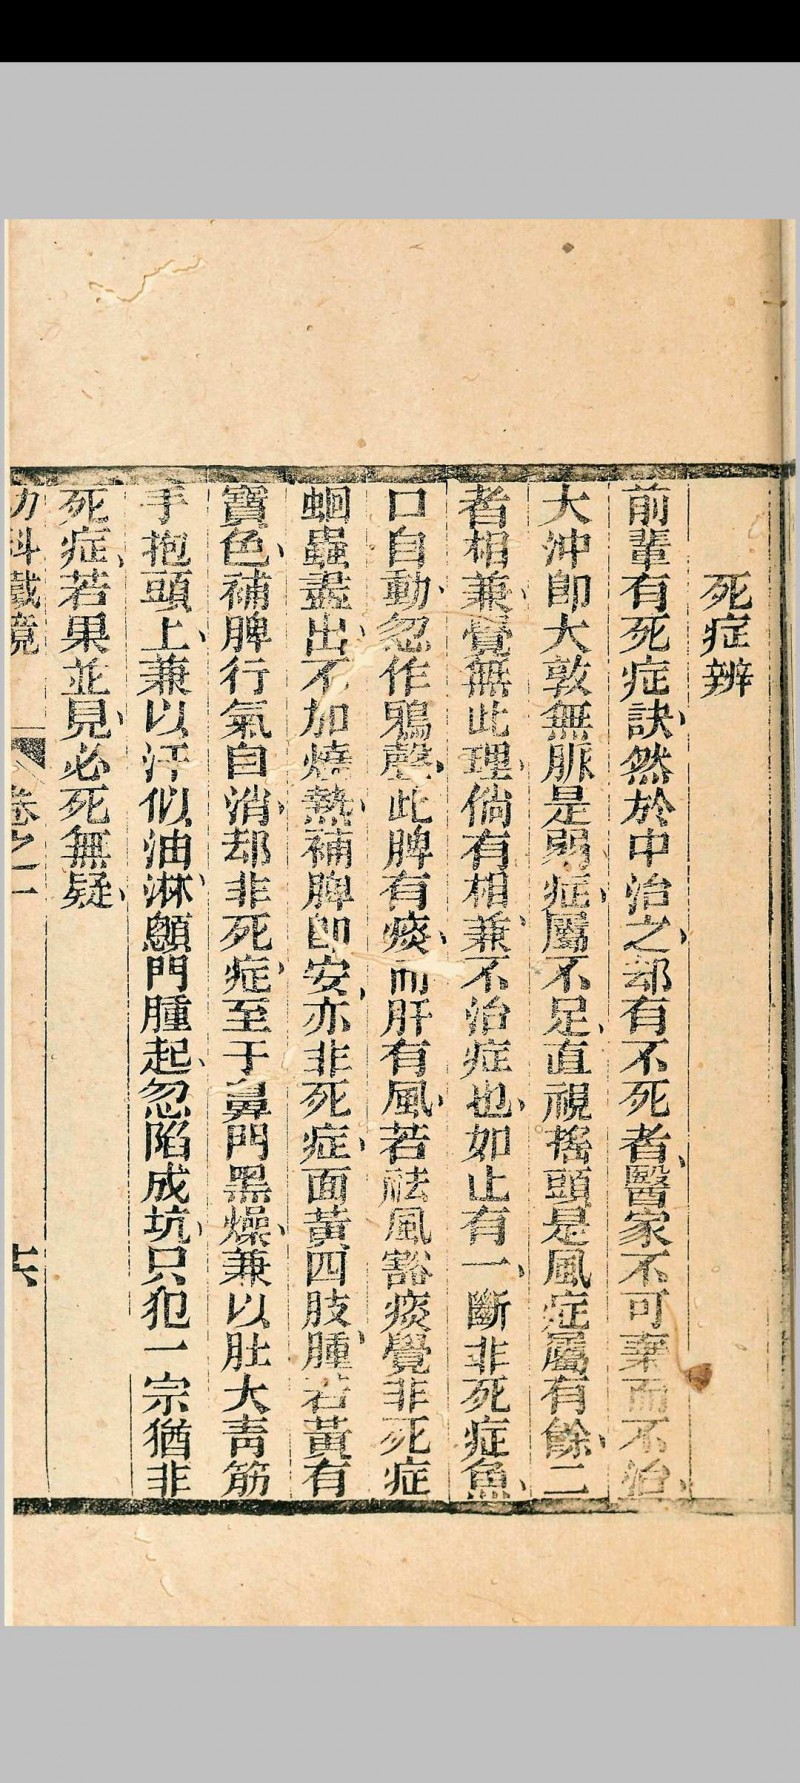 死症辨
前輩有死症訣然於中治之却有不死者醫家不可棄而不治
大沖即大敦無脈是弱症屬不足直視搖頭是風症屬有餘二
者相兼覺無此理倘有相兼不治症也如止有一斷非死症魚
口自動忽作鴉聲此脾有痰而肝有風若祛風豁痰覺非死症
蛔蟲盡出不加燒熱補脾即安亦非死症面黃四肢腫若黃有
寶色補脾行氣自消却非死症至于鼻門黑燥兼以肚大靑筋
手抱頭上兼以汗似油淋顖門腫起忽陷成坑只犯一宗猶非
死症若果並見必死無疑
幼科鐵鏡
卷之一
十六